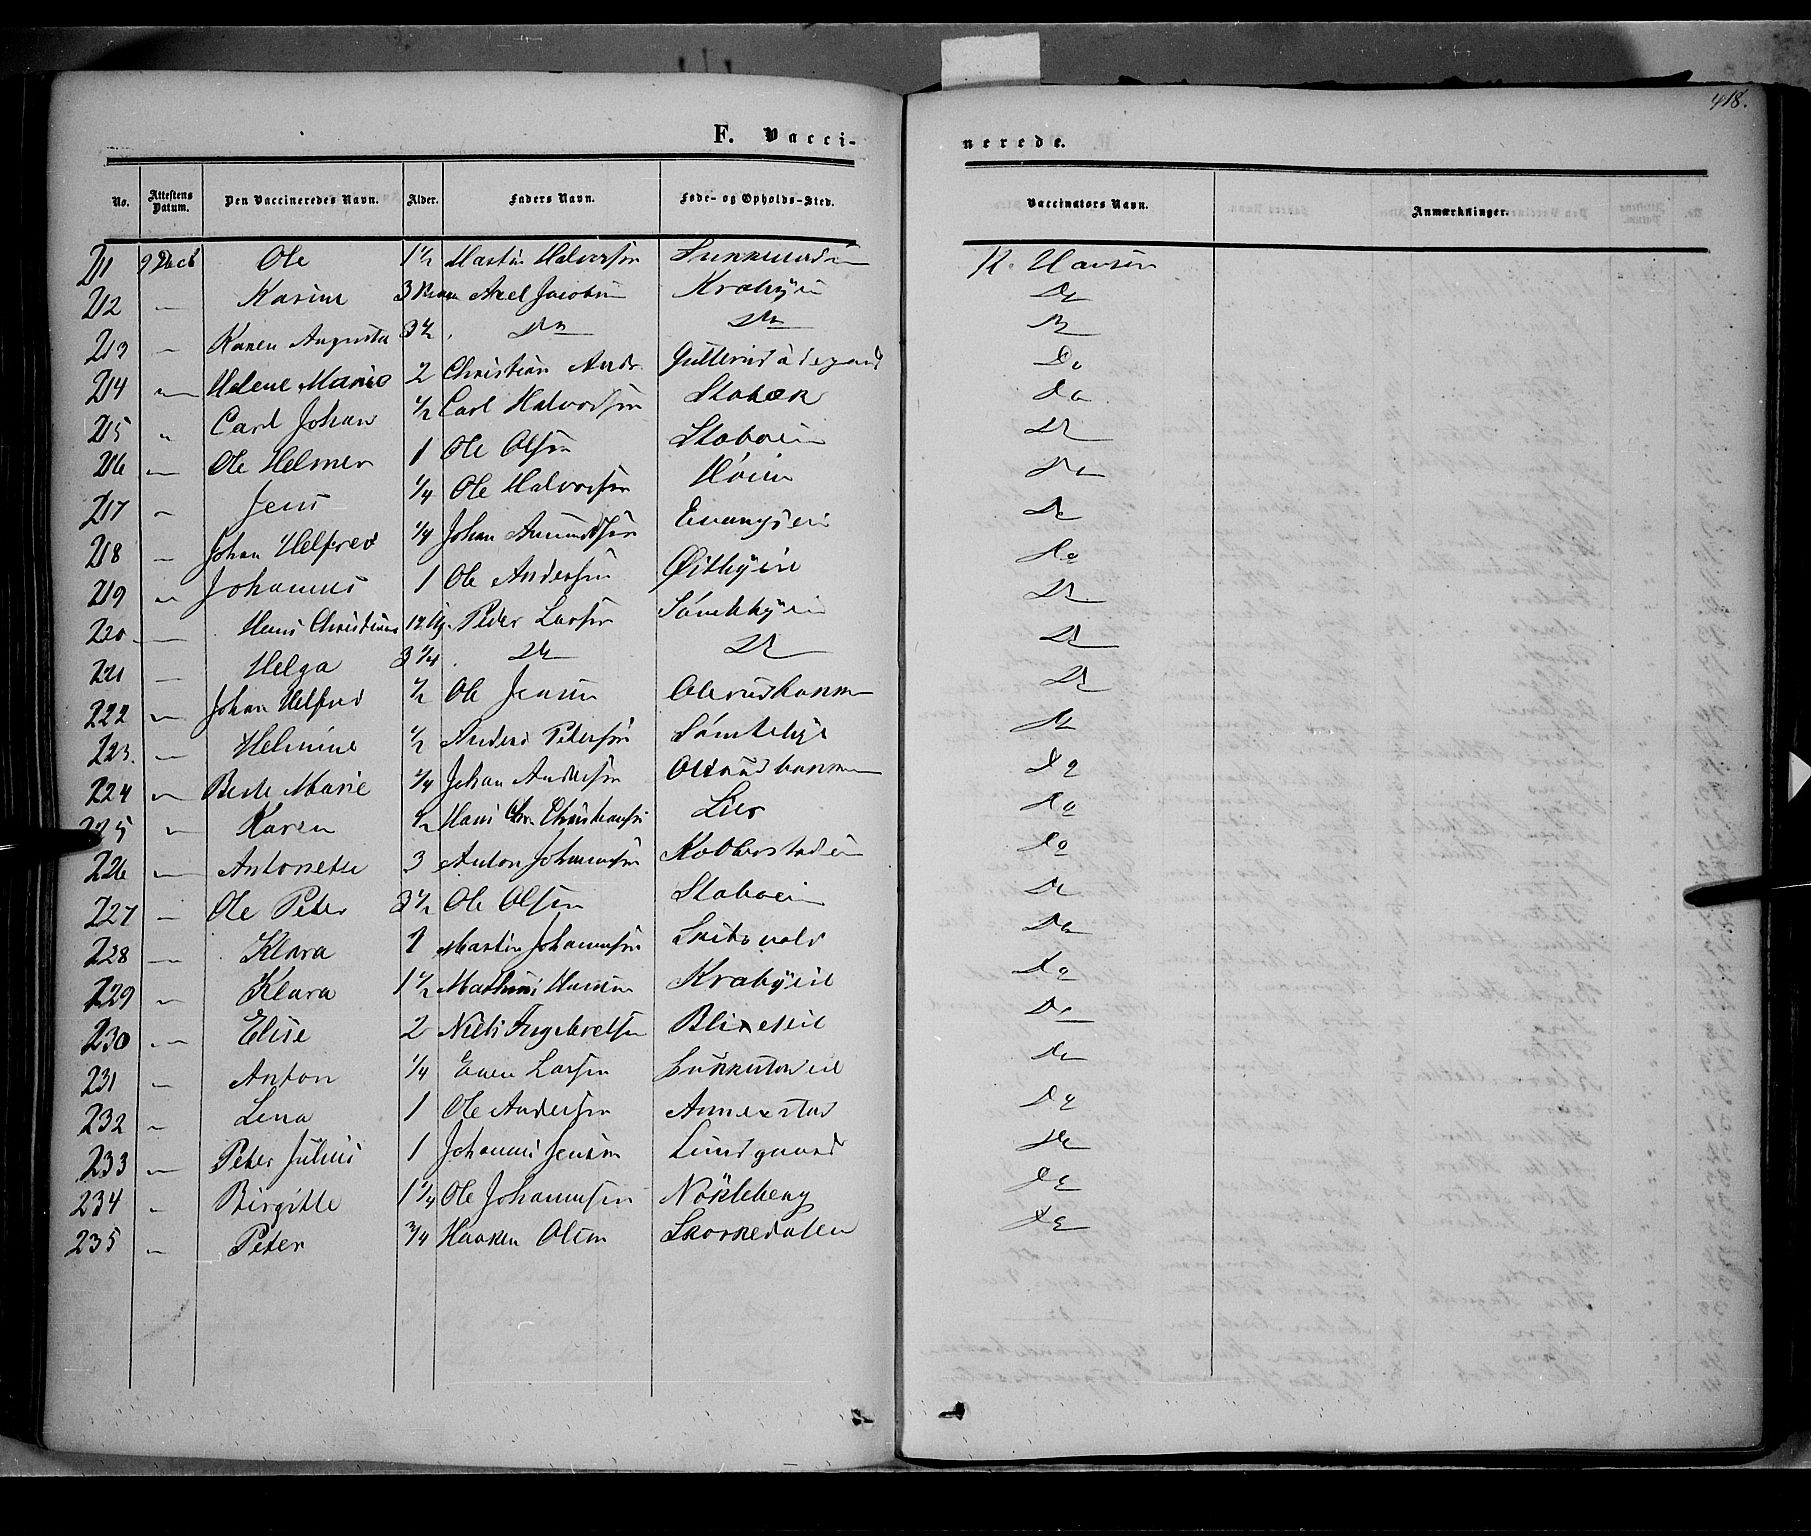 418.
F. Vacci- nerede.
No. Attestens Datum. Den Vaccineredes Navn. Alder. Faders Navn. Føde- og Opholds-Sted. Vaccinators Navn. Anmærkninger.
211 9 Decb Ole 1½ Martin Halvorsen N. Hansen
212 — Karine 3 Axel Jacobsen Krabyin Do
213 — Karen Augusta 3½ Do Do Do
214 — Helene Marie 2 Christian Andr. Gutterudødegaard Do
215 " Carl Johan ½ Carl Halvorsen Stabæk Do
216 — Ole Helmer 1 Ole Olsen Staboein Do
217 " Jens ¼ Ole Halvorsen Høien Do
218 — Johan Helfred ¼ Johan Amundsen Evangseie Do
219 " Johannes 1 Ole Andersen Østbyeie Do
220 — Hans Christinus 12 Peder Larsen Do
221 — Helga 3¼ Do Do Do
222 — Johan Helfred ½ Ole Jensen Olerudbannen Do
223. — Helmine ½ Anders Petersen Sønsteby Do
224 — Berte Marie ¼ Johan Andersen Do
225 " Karen ½ Hans Chr. Christiansen Lier Do
226 — Antonette 3 Anton Johannesen Kobberstadeie Do
227 — Ole Peter 3½ Ole Olsen Staboein Do
228 — Klara 1 Martin Johannesen Skitsvold Do
229 " Klara 1½ Mathias Hansen Krabyeie Do
230 — Elise 2 Niels Ingebretsen Blixeie Do
231 — Anton ¼ Even Larsen Do
232 " Lena 1 Ole Andersen Annexstad Do
233 — Peter Julius 1 Johannes Jensen Lundgaard Do
234 " Birgitte 1¼ Ole Johannesen Nøkleberg Do
235 " Peter ¾ Haaken Olsen Skorkedalen Do